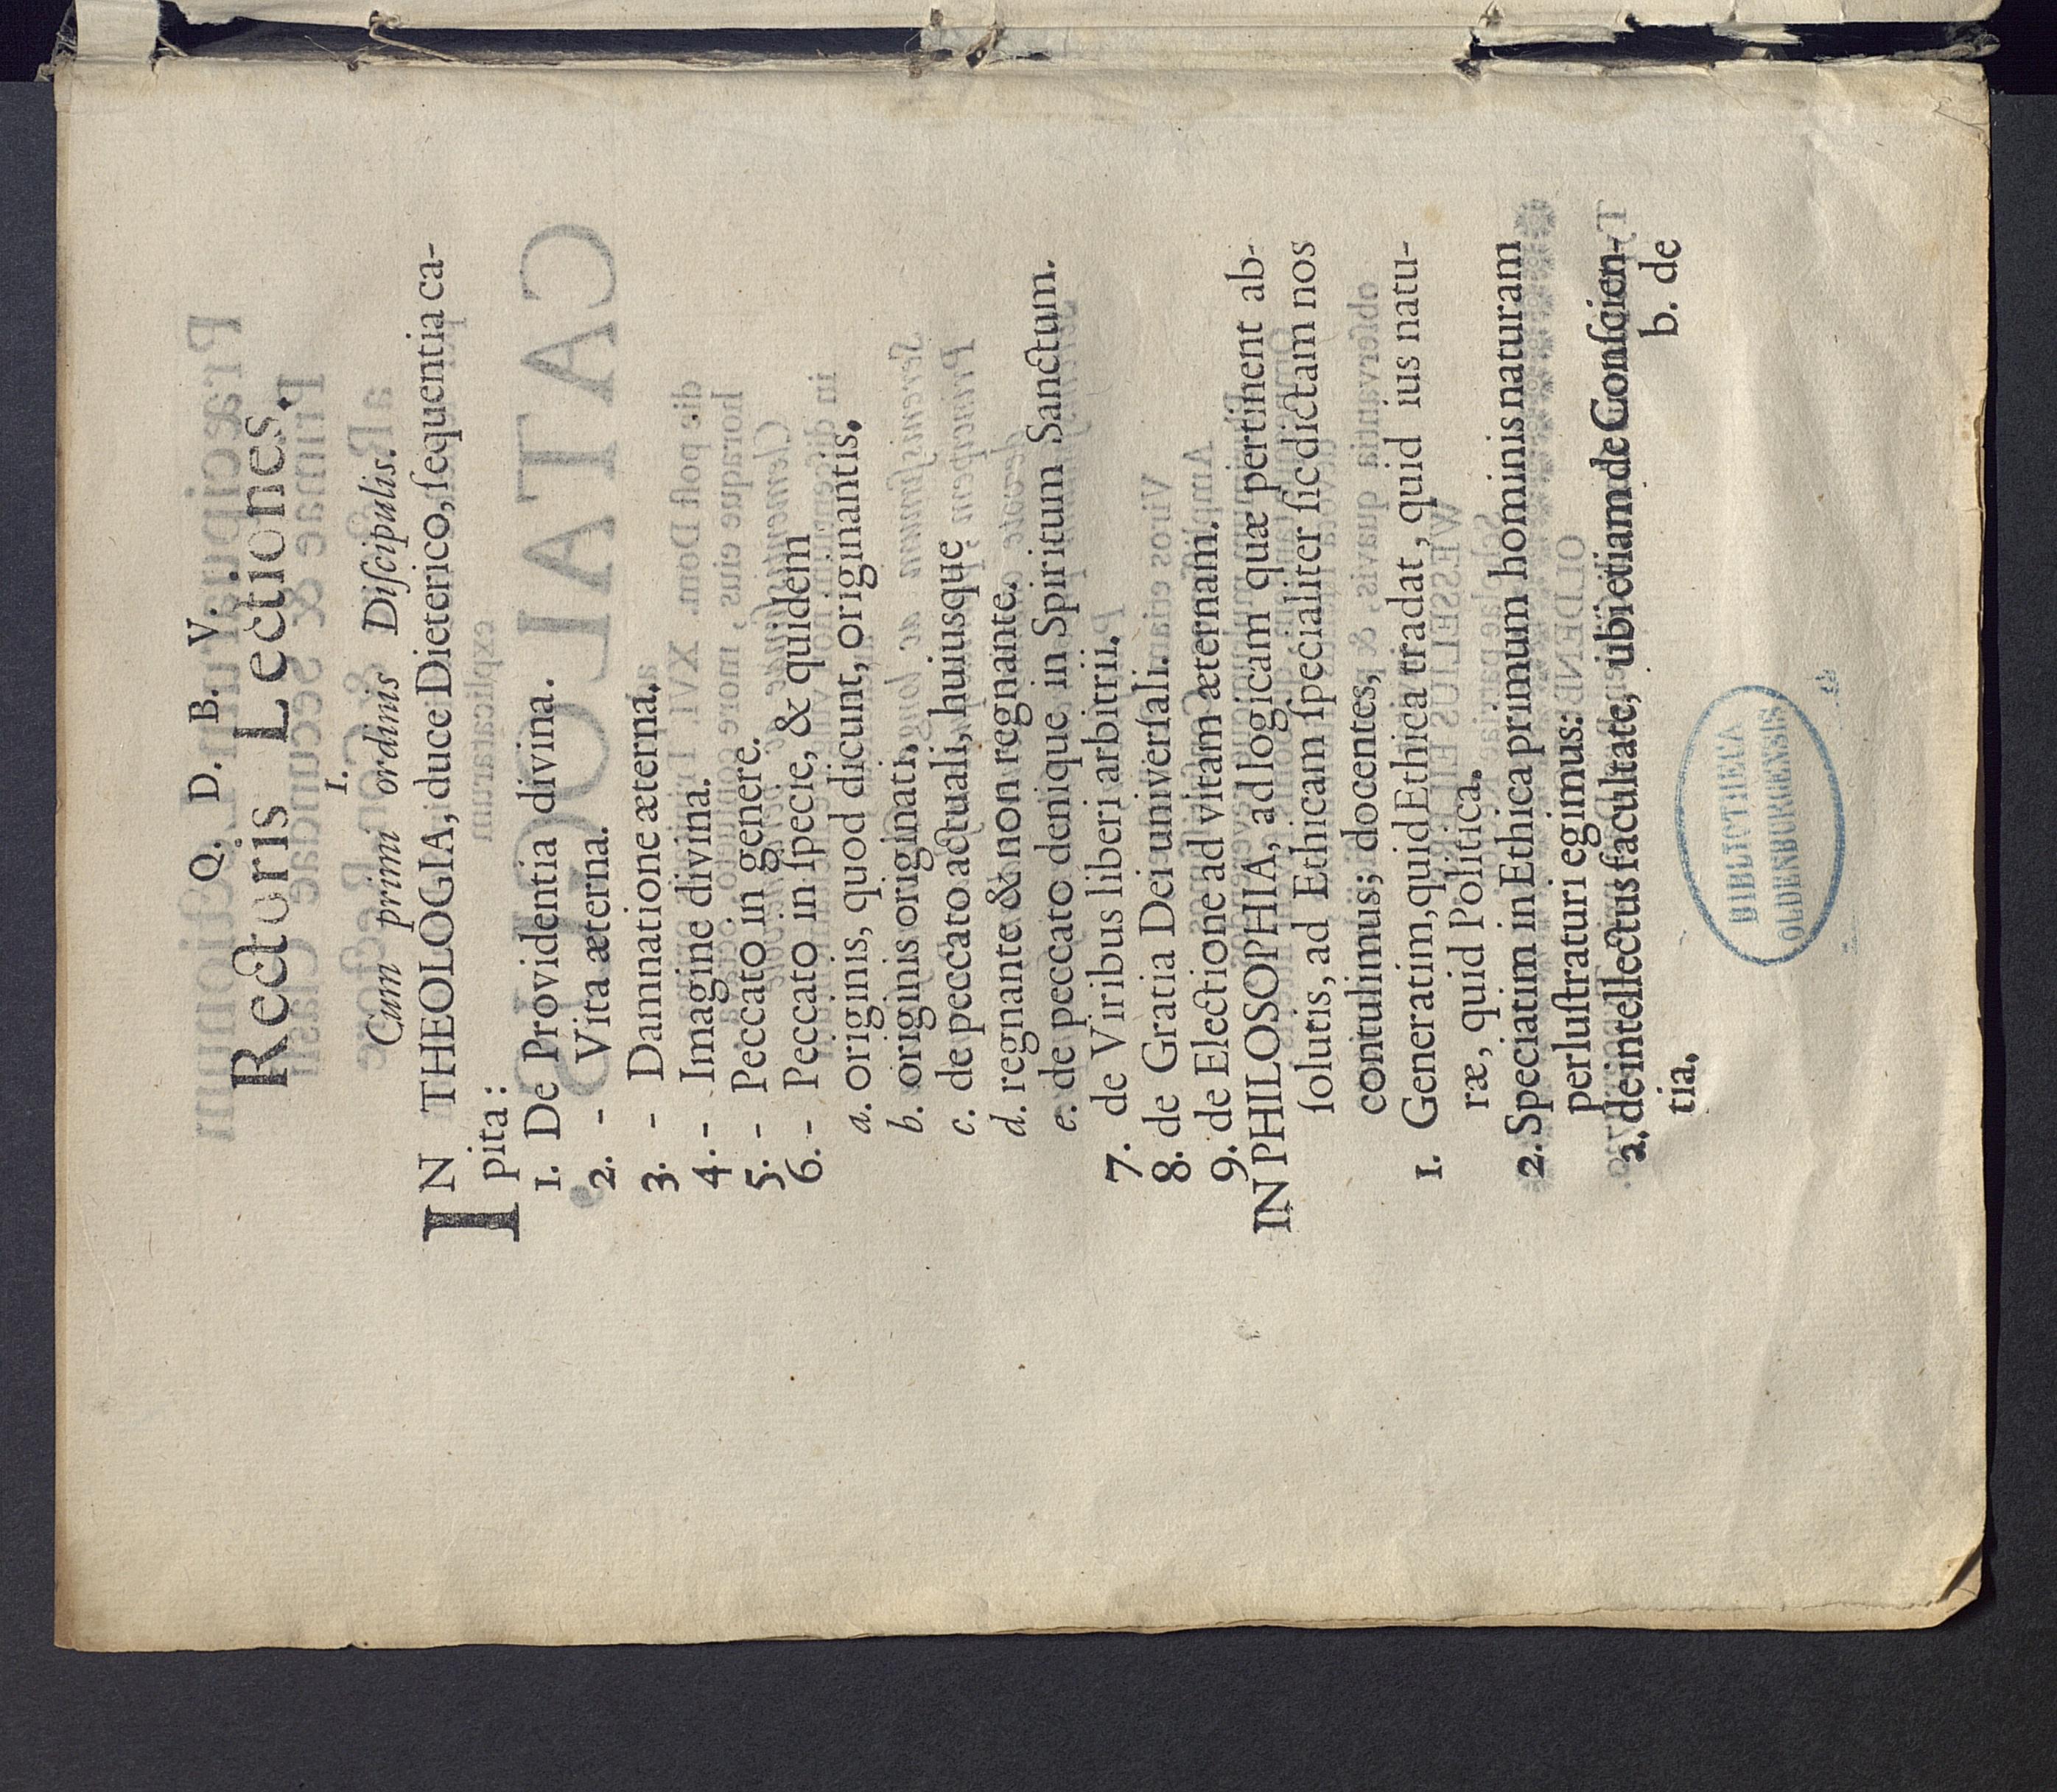 Q. D. B. V.
Rectoris Lectiones.
I.
Cum primi ordinis Diſcipulis.
IN THEOLOGIA, duce Dieterico, ſequentia ca-
pita:
1. De Providentia divina.
2. - Vita æterna.
3. - Damnatione æterna.
4. - Imagine divina.
5. - Peccato in genere.
6. - Peccato in ſpecie, & quidem
a. originis, quod dicunt, originantis.
b. originis originati,
c. de peccato actuali, huiusque
d. regnante & non regnante.
e. de peccato denique in Spiritum Sanctum.
7. de Viribus liberi arbitrii.
8. de Gratia Dei univerſali.
9. de Electione ad vitam æternam.
IN PHILOSOPHIA, ad logicam quæ pertinent ab-
ſolutis, ad Ethicam ſpecialiter ſic dictam nos
contulimus; docentes,
1. Generatim, quid Ethica tradat, quid ius natu-
ræ, quid Politica.
2. Speciatim in Ethica primum hominis naturam
perluſtraturi egimus:
a. de intellectus facultate, ubi etiam de Conſcien-
tia.
b. de
BIBLIOTHECA
OLDENBURGENSIS